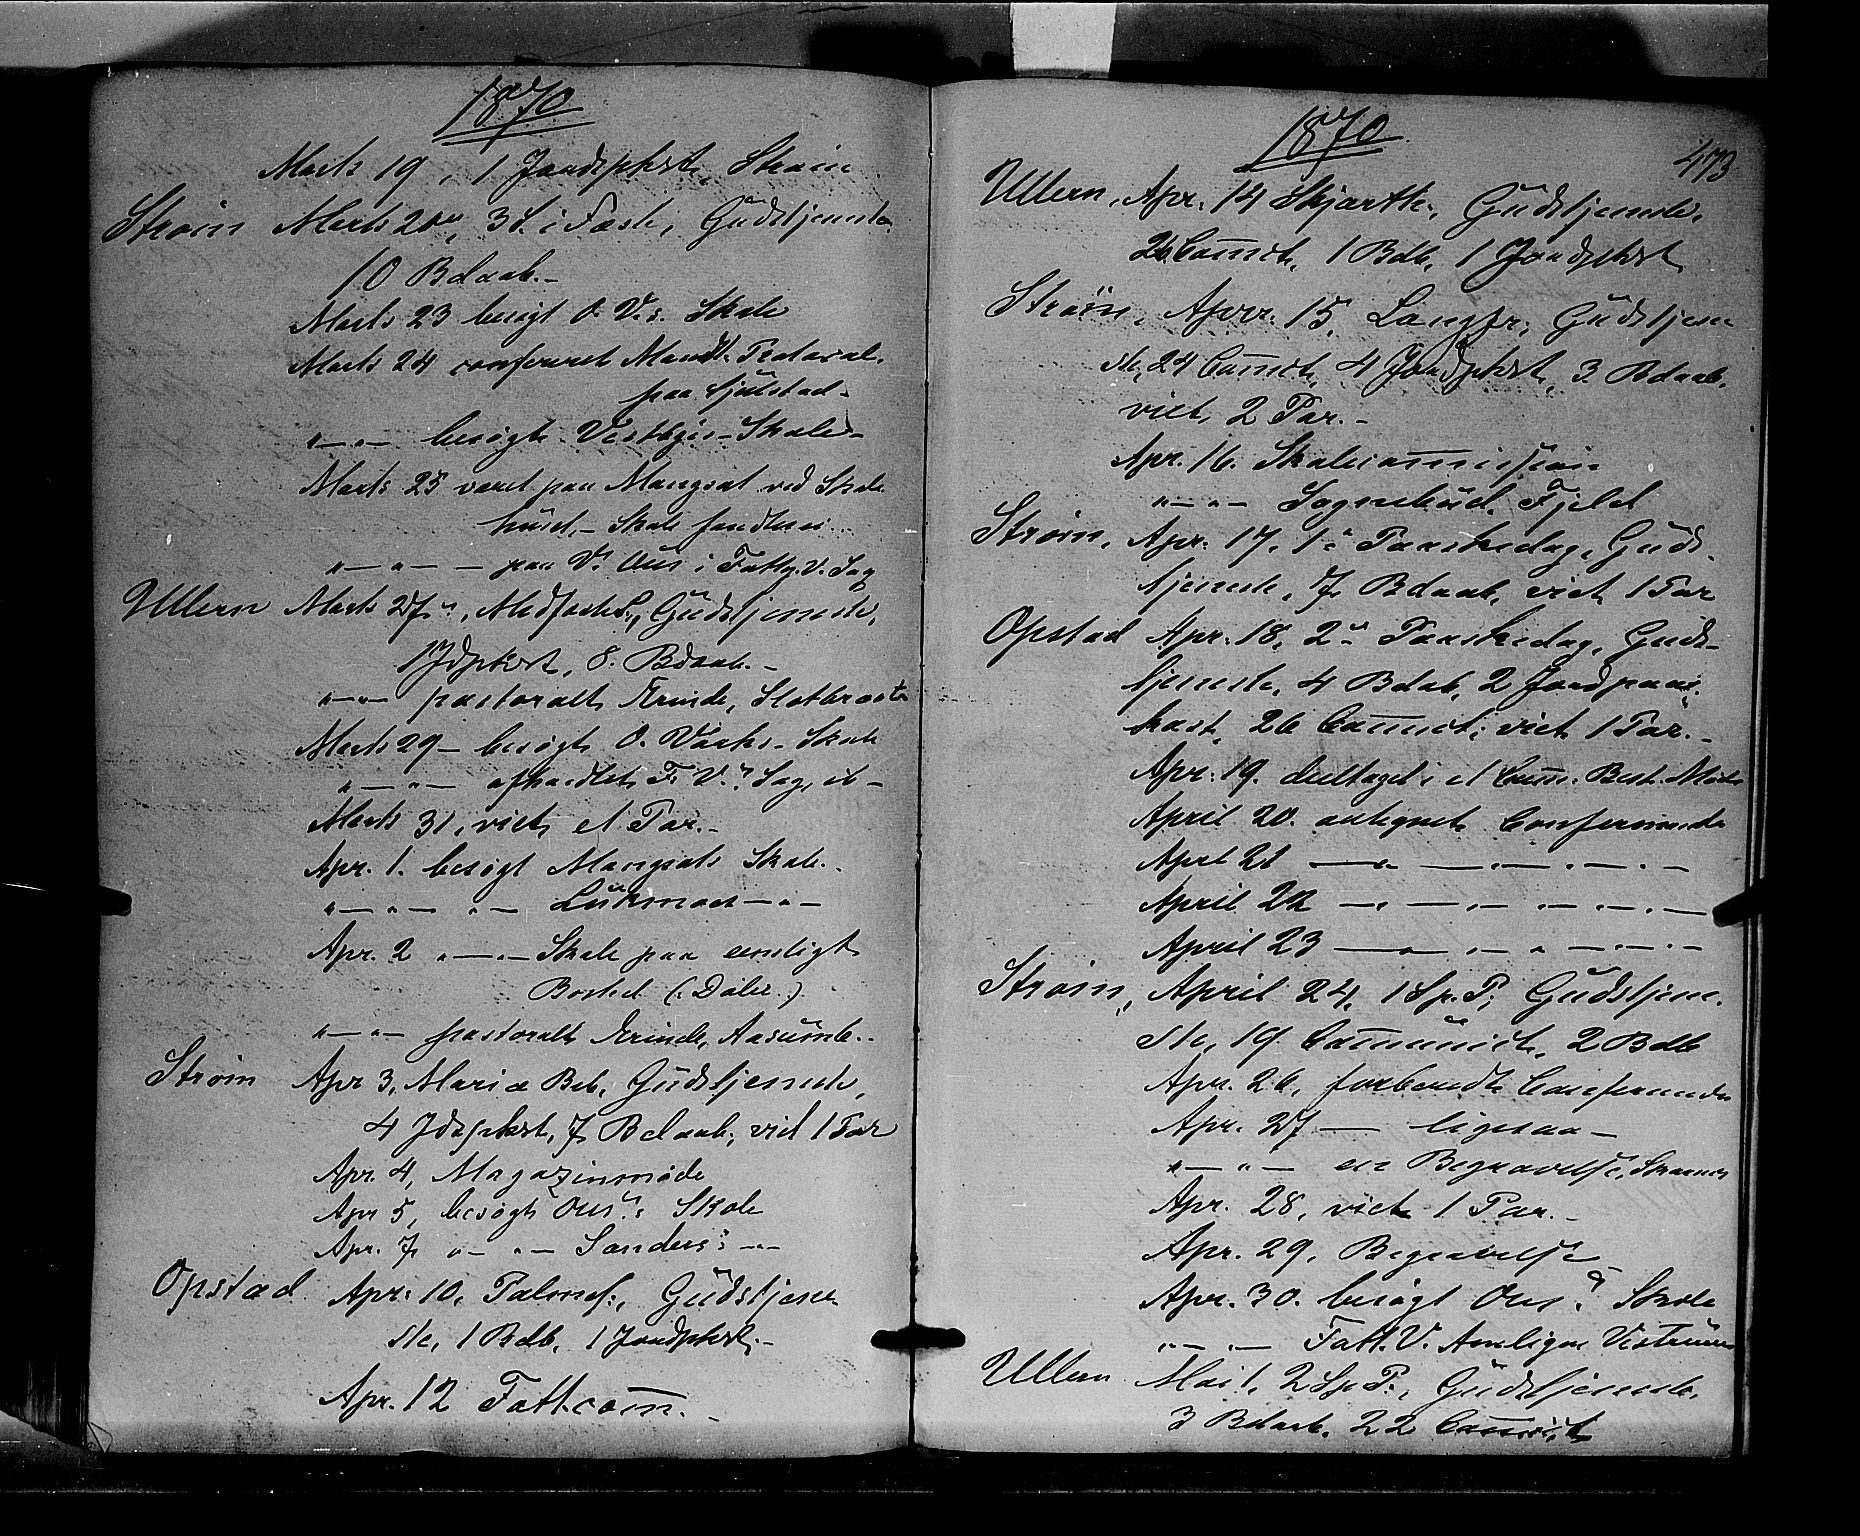 1870
Marts 19, 1 Jordspkst, Strøm
Strøm Marts 20, 3 S. i Faste, Gudstjeneste
10 Bdaab. -
Marts 23 besøgt O. V.s Skole
Marts 24 confereret Mandt. Protocol.
paa Sjulstad -
" — " — besøgt Vestbyes - Skole -
Marts 25 været paa Mangset ved Skole
huset, - Skole
" — " — — paa Ous i Fattigv. Sag
Ullern Marts 27, Midfaste S., Gudstjeneste,
1 Jdpkst, 8. Bdaab. -
" — " — pastoralt Ærinde, Slotbraaten
Marts 29 - besøgt O. Værks - Skole
" — " — afhandlet F. V. Sag, ib -
Marts 31, viet et Par. -
Apr. 1. besøgt Mangsets Skole. -
" — " — " — Lürmoen — " —
Apr. 2 " — " — Skole paa
Bosted (: Døler :)
" — " — pastoralt Ærinde, Aasumb. -
Strøm Apr 3, Mariæ Beb, Gudstjeneste,
4 Jdspkst, 7 Bdaab, viet 1 Par
Apr. 4, Magazinmøde
Apr 5, besøgt Ous Skole
Apr. 7 " — " — Sanders — " —
Opstad Apr. 10, Palmes., Gudstjene-
ste, 1 Bdb, 1 Jordpkst, -
Apr. 12 Fatt.com. -
1870
473
Ullern, Apr. 14 Skjærth., Gudstjeneste,
26 Comct., 1 Bdb, 1 Jordspkst
Strøm, Apr. 15, Langfr., Gudstjene
ste, 24 Comct, 4 Jordpkst, 3 Bdaab,
viet 2 Par. -
Apr. 16. Skolecommission
" — " — Sognebud, Fjeld
Strøm, Apr. 17, 1 Paaskedag, Guds-
tjeneste, 7 Bdaab, viet 1 Par
Opstad Apr. 18, 2 Paaskedag, Guds-
tjeneste, 4 Bdab, 2 Jordpaa-
kast, 26 Comct; viet 1 Par. -
Apr. 19. deeltaget i et Com. Best. Møde
April 20. antegnet Confirmander
April 21 — " — — " — " — " —
April 22 — " — — " — " — " —
April 23 — " — — " — " — " —
Strøm, April 24, 1 S. p. P; Gudstjene-
ste, 19 Communict, 2 Bdb
Apr. 26, forberedt Confirmander
Apr. 27 — ligesaa -
" — " — en Begravelse, Skarnes
Apr. 28, viet 1 Par. -
Apr. 29, Begravelse
Apr. 30. besøgt Ous Skole
" — " — Fatt. V. Anliggr
Ullern Mai 1, 2 S p P., Gudstjeneste,
3 Bdaab, 22 Comict